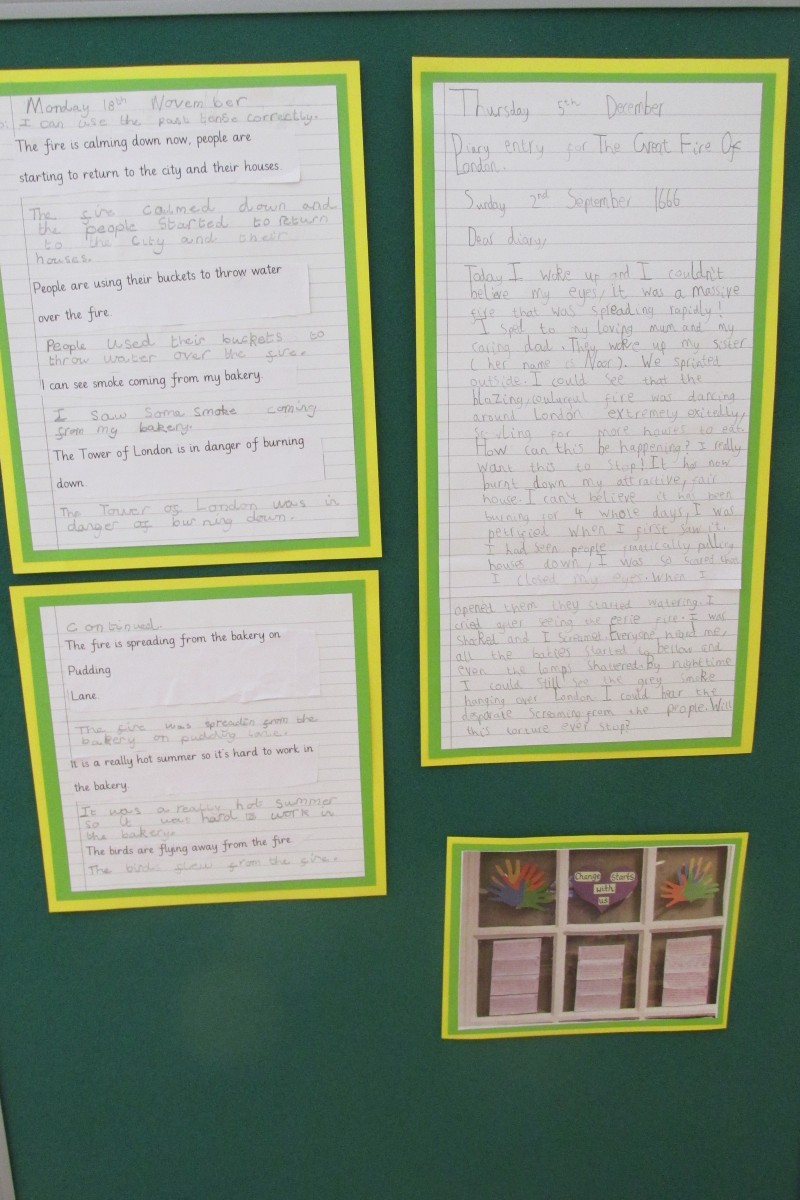 Monday 18th November
I can use the past tense correctly.
The fire is calming down now, people are
starting to return to the city and their houses.
The fire calmed down and
the people started to return
to the city and their
houses.
People are using their buckets to throw water
over the fire.
People used their buckets to
throw water over the fire.
I can see smoke coming from my bakery.
I saw some smoke coming
from my bakery.
The Tower of London is in danger of burning
down.
The Tower of London was in
danger of burning down.
Continued.
The fire is spreading from the bakery on
Pudding
Lane.
The fire was spreadin from the
bakery on pudding lane.
It is a really hot summer so it's hard to work in
the bakery.
It was a really hot summer
so it was hard to work in
the bakery.
The birds are flying away from the fire.
The birds flew from the fire.
Thursday 5th December
Diary entry for The Great Fire Of
London.
Sunday 2nd September 1666
Dear diary,
Today I woke up and I couldn't
believe my eyes, it was a massive
fire that was spreading rapidly!
I sped to my loving mum and my
caring dad. They woke up my sister
(her name is Noor). We sprinted
outside. I could see that the
blazing, coulourful fire was dancing
around London extremely exitedly,
for more houses to eat.
How can this be happening? I really
want this to stop! It has now
burnt down my attractive, fair
house. I can't believe it has been
burning for 4 whole days, I was
petrified when I first saw it.
I had seen people frantically pulling
houses down, I was so scared that
I closed my eyes. When I
opened them they started watering. I
cried after seeing the eerie fire. I was
shoked and I screamed. Everyone heard me,
all the babies started to bellow and
even the lamps shattered. By nighttime
I could still see the grey smoke
hanging over London. I could hear the
desperate screaming from the people. Will
this torture ever stop?
Change starts
with
us